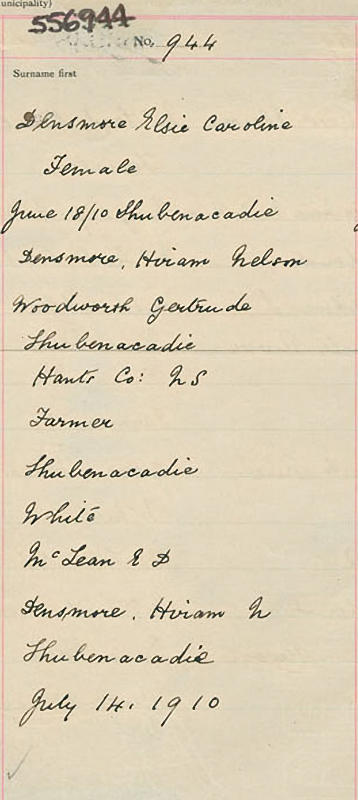 unicipality)
556944
No. 944
Surname first
Densmore Elsie Caroline
Female
June 18/10 Shubenacadie
Densmore, Hiram Nelson
Woodworth Gertrude
Shubenacadie
Hants Co: NS
Farmer
Shubenacadie
White
McLean E D
Densmore, Hiram N
Shubenacadie
July 14, 1910